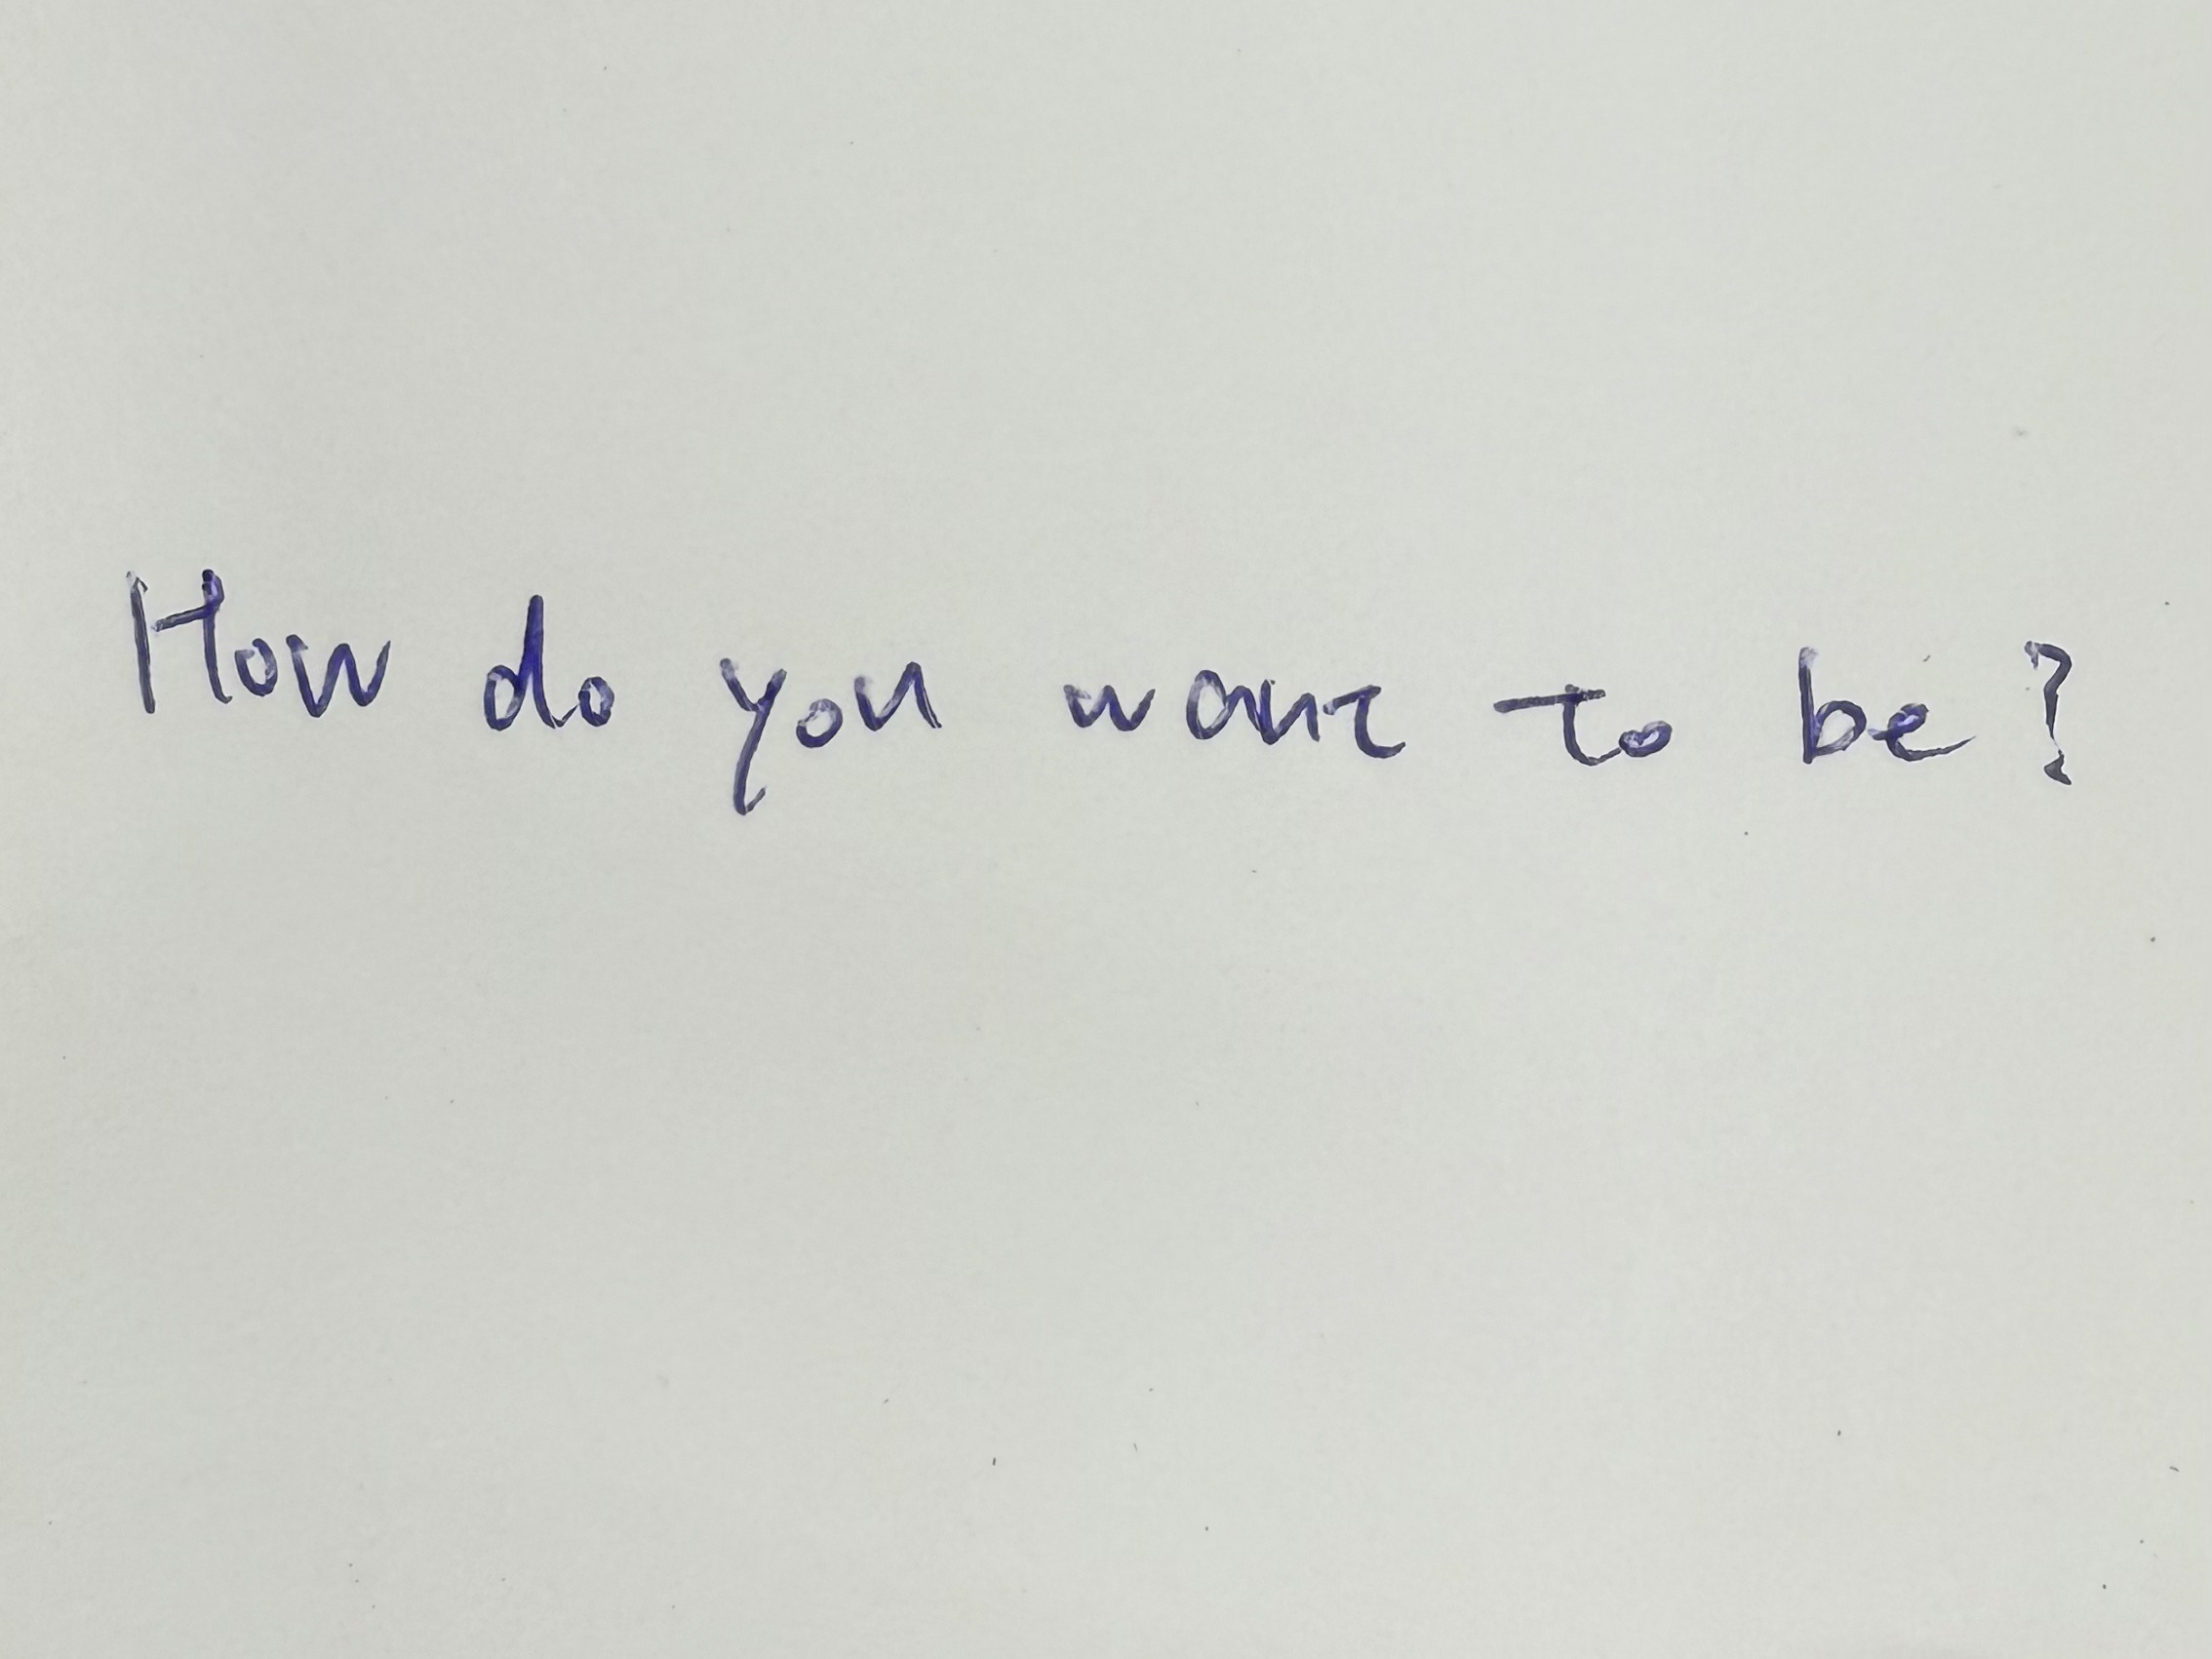 How do you want to be?